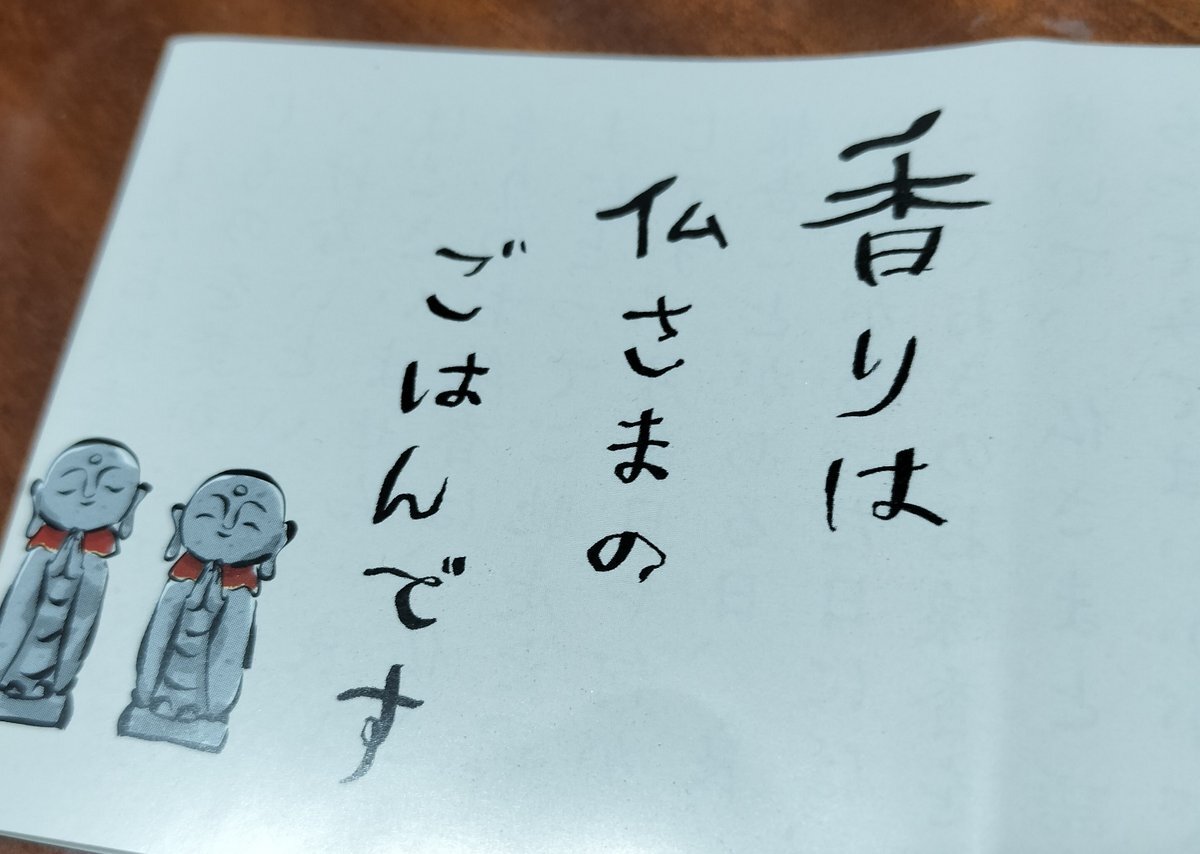 香りは
仏さまの
ごはんです